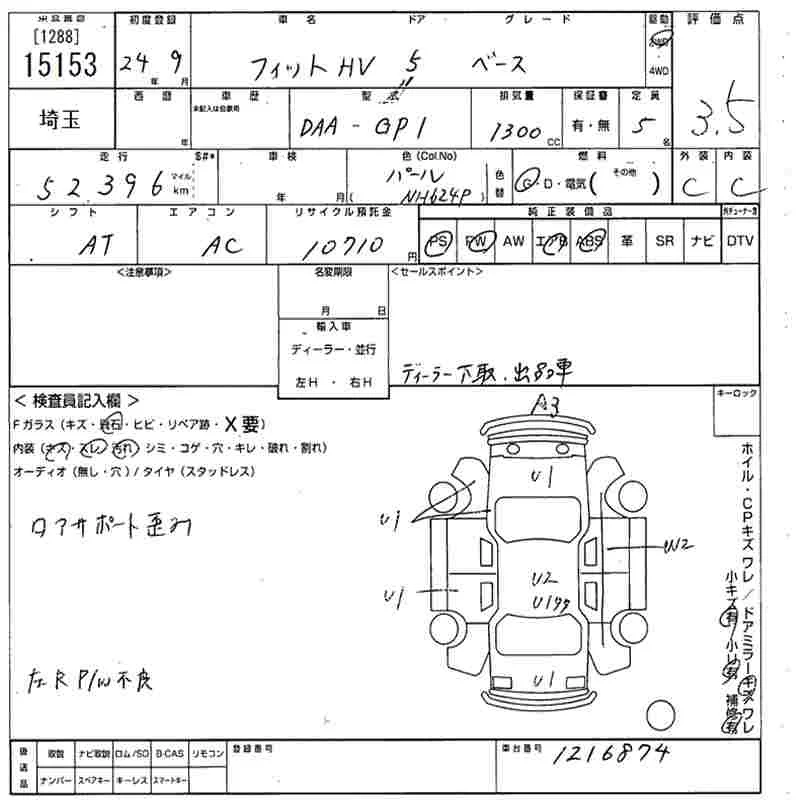 [1288] 初度登録 車名 ドア グレード 駆動 評価点
15153 24年 9月 フィットHV 5 ベース 2WD 4WD 3.5
埼玉 西暦 年 車歴 未記入は自家用 型式 排気量 保証書 定員
DAA-GP1 1300cc 有・無 5名
走行 車検 色(Col.No) 燃料 外装 内装
52396 マイル km 年 月 パール (NH624P) 色替 G・D・電気( その他 ) C C
シフト エアコン リサイクル預託金 純正装備品
AT AC 10710円 PS PW AW エアB ABS 革 SR ナビ DTV
<注意事項> 名変期限 <セールスポイント>
月 日
輸入車
ディーラー・並行
左H ・ 右H
ディーラー下取、出品車
<検査員記入欄> キーロック
Fガラス(キズ・飛石・ヒビ・リペア跡・X要)
内装(キズ・スレ・汚れ・シミ・コゲ・穴・キレ・破れ・割れ)
オーディオ(無し・穴)/タイヤ(スタッドレス)
A3
U1
U1
ロアサポート歪み
W2
U2
U1
U1
左R P/W不良
ホイル・CPキズ ワレ/ドアミラーキズ ワレ
小キズ有/小凹有 補修有
後送品 取説 ナビ取説 ロム/SD B-CAS リモコン 登録番号 車台番号
ナンバー スペアキー キーレス スマートキー 1216874